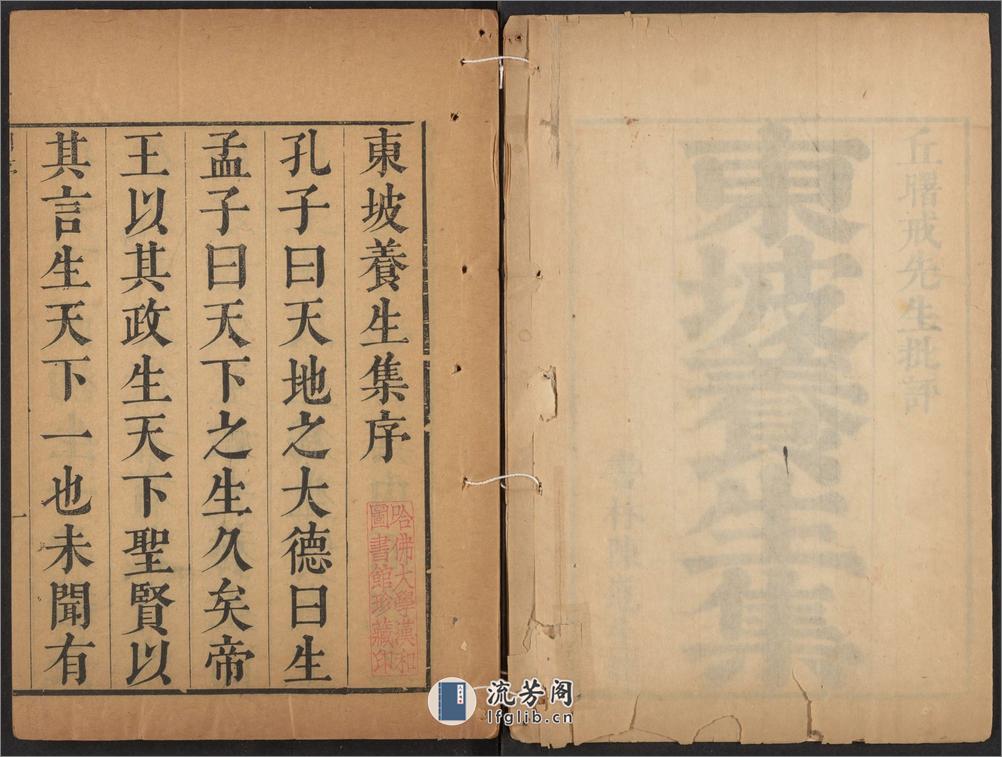 丘曙戒先生批評
東坡養生集
林陳
東坡養生集序
孔子曰天地之大德曰生
孟子曰天下之生久矣帝
王以其政生天下聖賢以
其言生天下一也未聞有
哈佛大學漢和
圖書館珍藏印
流芳阁
lfglib.cn